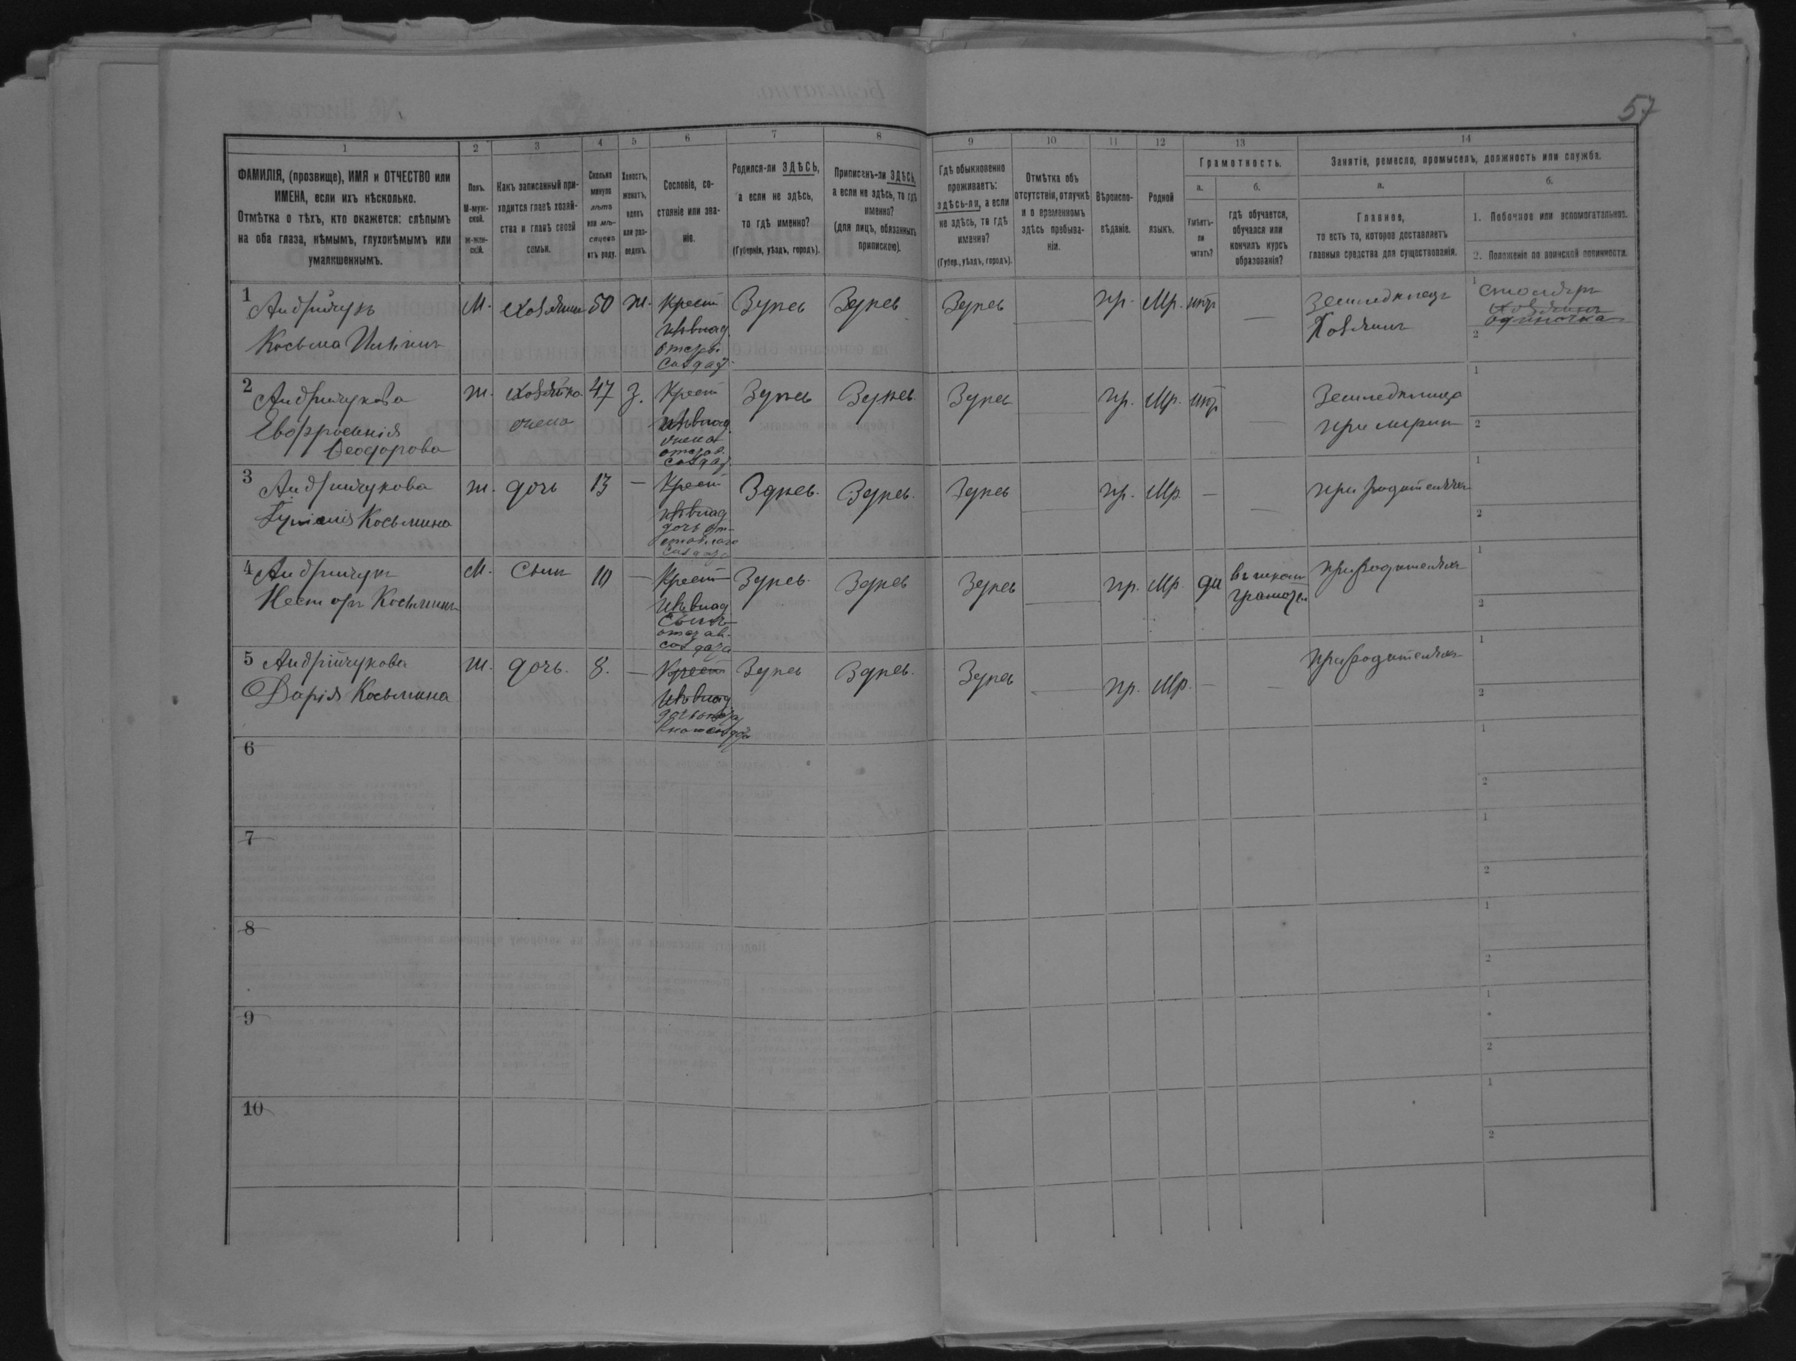 57
1 2 3 4 5 6 7 8 9 10 11 12 13 14
ФАМИЛІЯ, (прозвище), ИМЯ и ОТЧЕСТВО или
ИМЕНА, если ихъ нѣсколько.
Отмѣтка о тѣхъ, кто окажется: слѣпымъ
на оба глаза, нѣмымъ, глухонѣмымъ или
умалишеннымъ.
Полъ.
М-муж-
ской.
Ж-жен-
скій.
Какъ записанный при-
ходится главѣ хозяй-
ства и главѣ своей
семьи.
Сколько
минуло
лѣтъ
или мѣ-
сяцевъ
отъ роду.
Холостъ,
женатъ,
вдовъ
или раз-
веденъ.
Сословіе, со-
стояніе или зва-
ніе.
Родился-ли ЗДѢСЬ,
а если не здѣсь,
то гдѣ именно?
(Губернія, уѣздъ, городъ).
Приписанъ-ли ЗДѢСЬ,
а если не здѣсь, то гдѣ
именно?
(для лицъ, обязанныхъ
припискою).
Гдѣ обыкновенно
проживаетъ:
здѣсь-ли, а если
не здѣсь, то гдѣ
именно?
(Губер., уѣздъ, городъ).
Отмѣтка объ
отсутствіи, отлучкѣ
и о временномъ
здѣсь пребыва-
ніи.
Вѣроиспо-
вѣданіе.
Родной
языкъ.
Грамотность.
а.
Умѣетъ-
ли
читать?
б.
гдѣ обучается,
обучался или
кончилъ курсъ
образованія?
Занятіе, ремесло, промыселъ, должность или служба.
а.
Главное,
то есть то, которое доставляетъ
главныя средства для существованія.
б.
1. Побочное или вспомогательное.
2. Положеніе по воинской повинности.
1 Андрійчукъ
Косьма Ильинъ
М. хозяинъ 50 ж. Крест
изъ влад
отста.
солдат
Здѣсь Здѣсь Здѣсь — пр. Мр. нѣтъ —
Земледѣлецъ
Хозяинъ
1 столяръ
хозяинъ
одиночка
2
2 Андрійчукова
Евфросинія
Ѳеодорова
ж. хозяйка
жена
47 з. Крест
изъ влад
жена
отстав.
солдат
Здѣсь Здѣсь Здѣсь — пр. Мр. нѣтъ —
Земледѣлица
при мужѣ
1
2
3 Андрійчукова
Косьмина
ж. дочь 13 — Крест
изъ влад
дочь от-
ставнаго
солдата
Здѣсь. Здѣсь. Здѣсь пр. Мр. — —
при родителяхъ
1
2
4 Андрійчукъ
Несторъ Косьминъ
М. Сынъ 10 — Крест
изъ влад
сынъ
отстав.
солдата
Здѣсь. Здѣсь Здѣсь — пр. Мр. да
въ школѣ
грамоты
при родителяхъ
1
2
5 Андрійчукова
Дарія Косьмина
ж. дочь. 8. — Крест
изъ влад
Здѣсь Здѣсь. Здѣсь — пр. Мр. — —
при родителяхъ
1
2
6
1
2
7
1
2
8
1
2
9
1
2
10
1
2